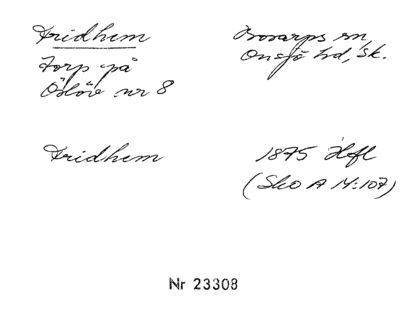 Fridhem
Torp på
Öslöv nr 8
Bosarps sn,
Onsjö hd, Sk.
Fridhem
1875 Hfl
(Sko A M:107)
Nr 23308